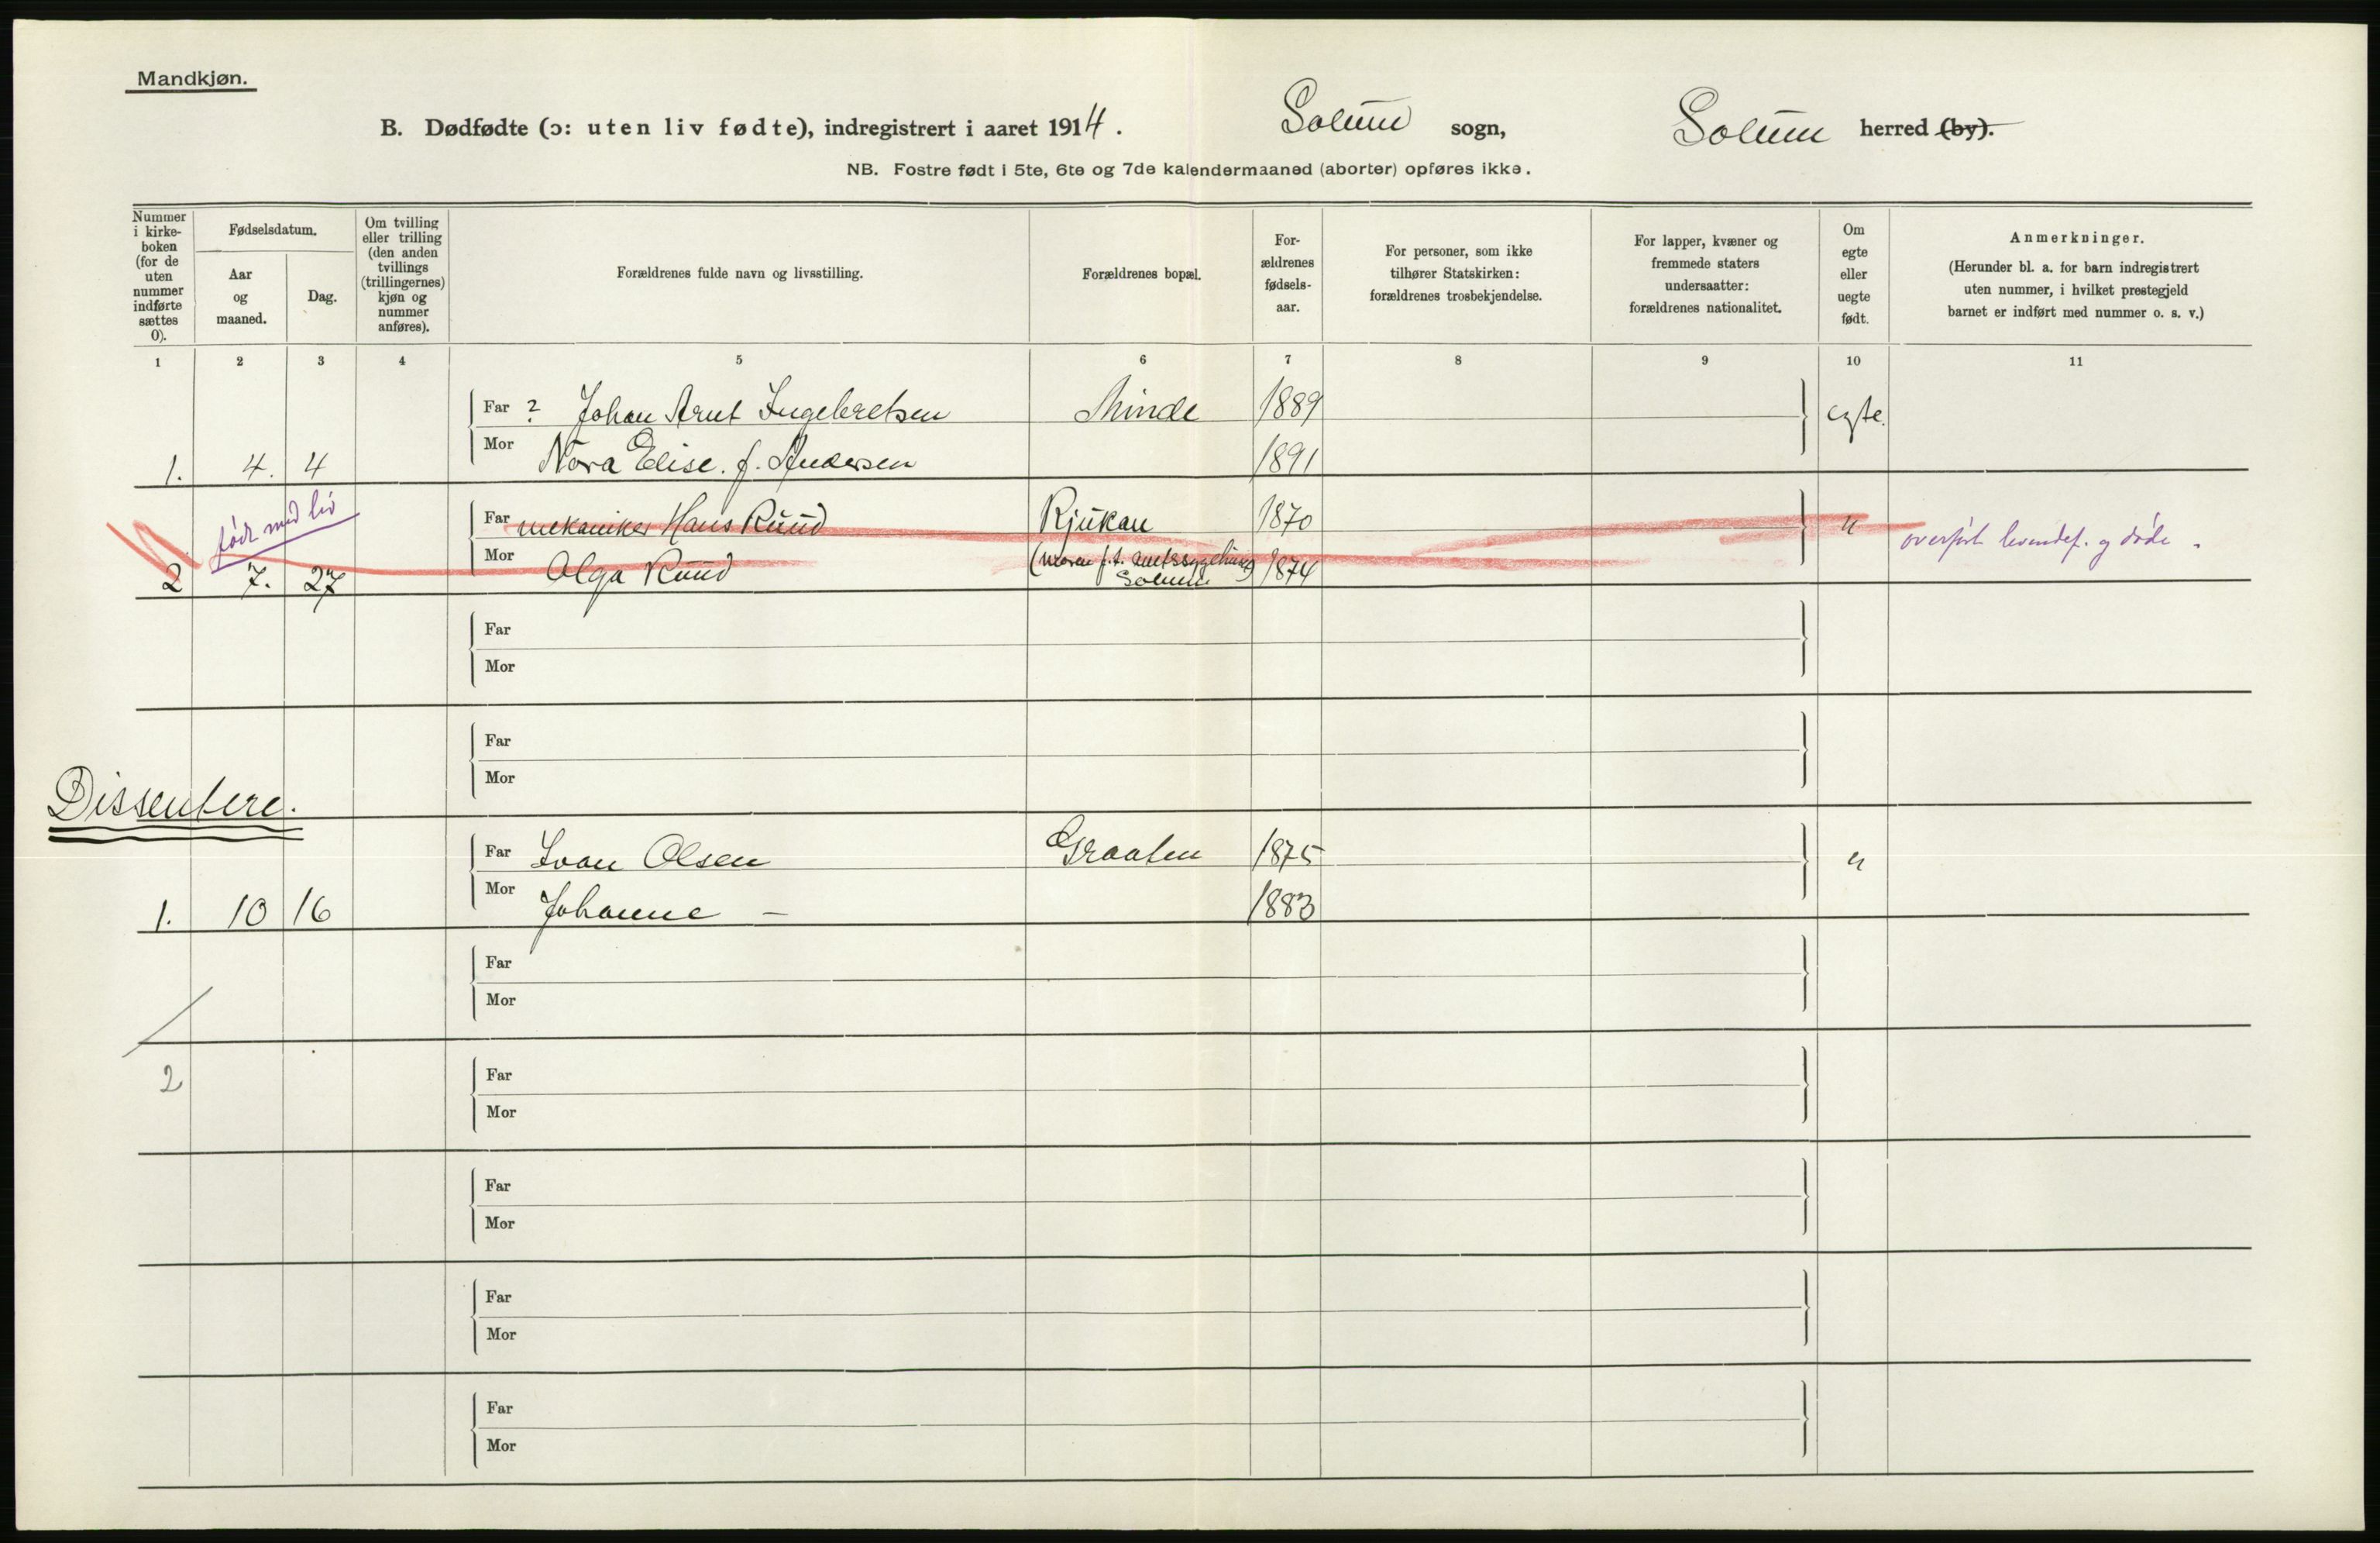 Mandkjøn.
B. Dødfødte (ɔ: uten liv fødte), indregistrert i aaret 1914. Solum sogn, Solum herred (by).
NB. Fostre født i 5te, 6te og 7de kalendermaaned (aborter) opføres ikke.
Nummer i kirke- boken (for de uten nummer indførte sættes 0).
Fødselsdatum.
Aar og maaned.
Dag.
Om tvilling eller trilling (den anden tvillings (trillingernes) kjøn og nummer anføres).
Forældrenes fulde navn og livsstilling.
Forældrenes bopæl.
For- ældrenes fødsels- aar.
For personer, som ikke tilhører Statskirken: forældrenes trosbekjendelse.
For lapper, kvæner og fremmede staters undersaatter: forældrenes nationalitet.
Om egte eller uegte født.
Anmerkninger.
(Herunder bl. a. for barn indregistrert uten nummer, i hvilket prestegjeld barnet er indført med nummer o. s. v.)
1 2 3 4 5 6 7 8 9 10 11
Far ? Johan Arnt Ingebretsen Minde 1889 egte.
1. 4. 4 Mor Nora Elise. f. Andersen 1891
født med liv
Far mekaniker Hans Ruud Rjukan 1870 " overført levendef. og døde.
2 7. 27 Mor Olga Ruud (moren f.t. amtssygehuset Solum) 1874
Far
Mor
Far
Mor
Dissentere.
Far Ivan Olsen Graaten 1875 "
1. 10 16 Mor Johanne — 1883
Far
Mor
2
Far
Mor
Far
Mor
Far
Mor
Far
Mor